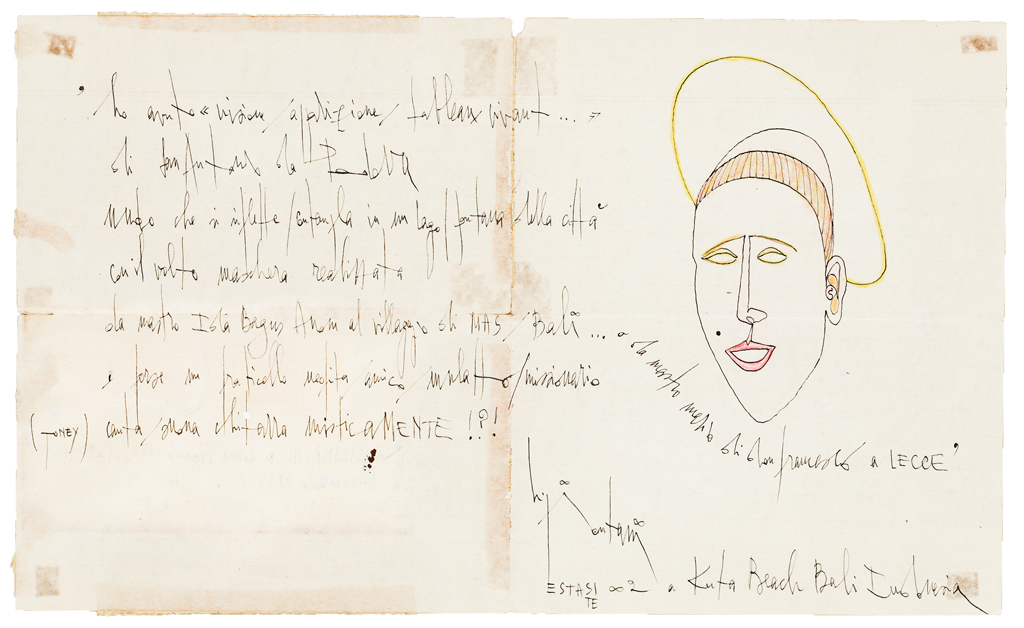 ' ho avuto « visione / apparizione / tableaux vivant ... »
di Sant'Antonio da PadoVA
che si riflette / contempla in un lago / fontana della città
con il volto maschera realizzata
da mastro Ida Bagus Anom al villaggio di MAS / Bali ...
e forse un fraticello amico / mulatto / missionario
(TONEY) canta / suona chitarra misticaMENTE !?!
o da mastro di don francesco a LECCE'
luigi ontani
ESTASI
TE
∞ 2 a Kuta Beach Bali Indonesia